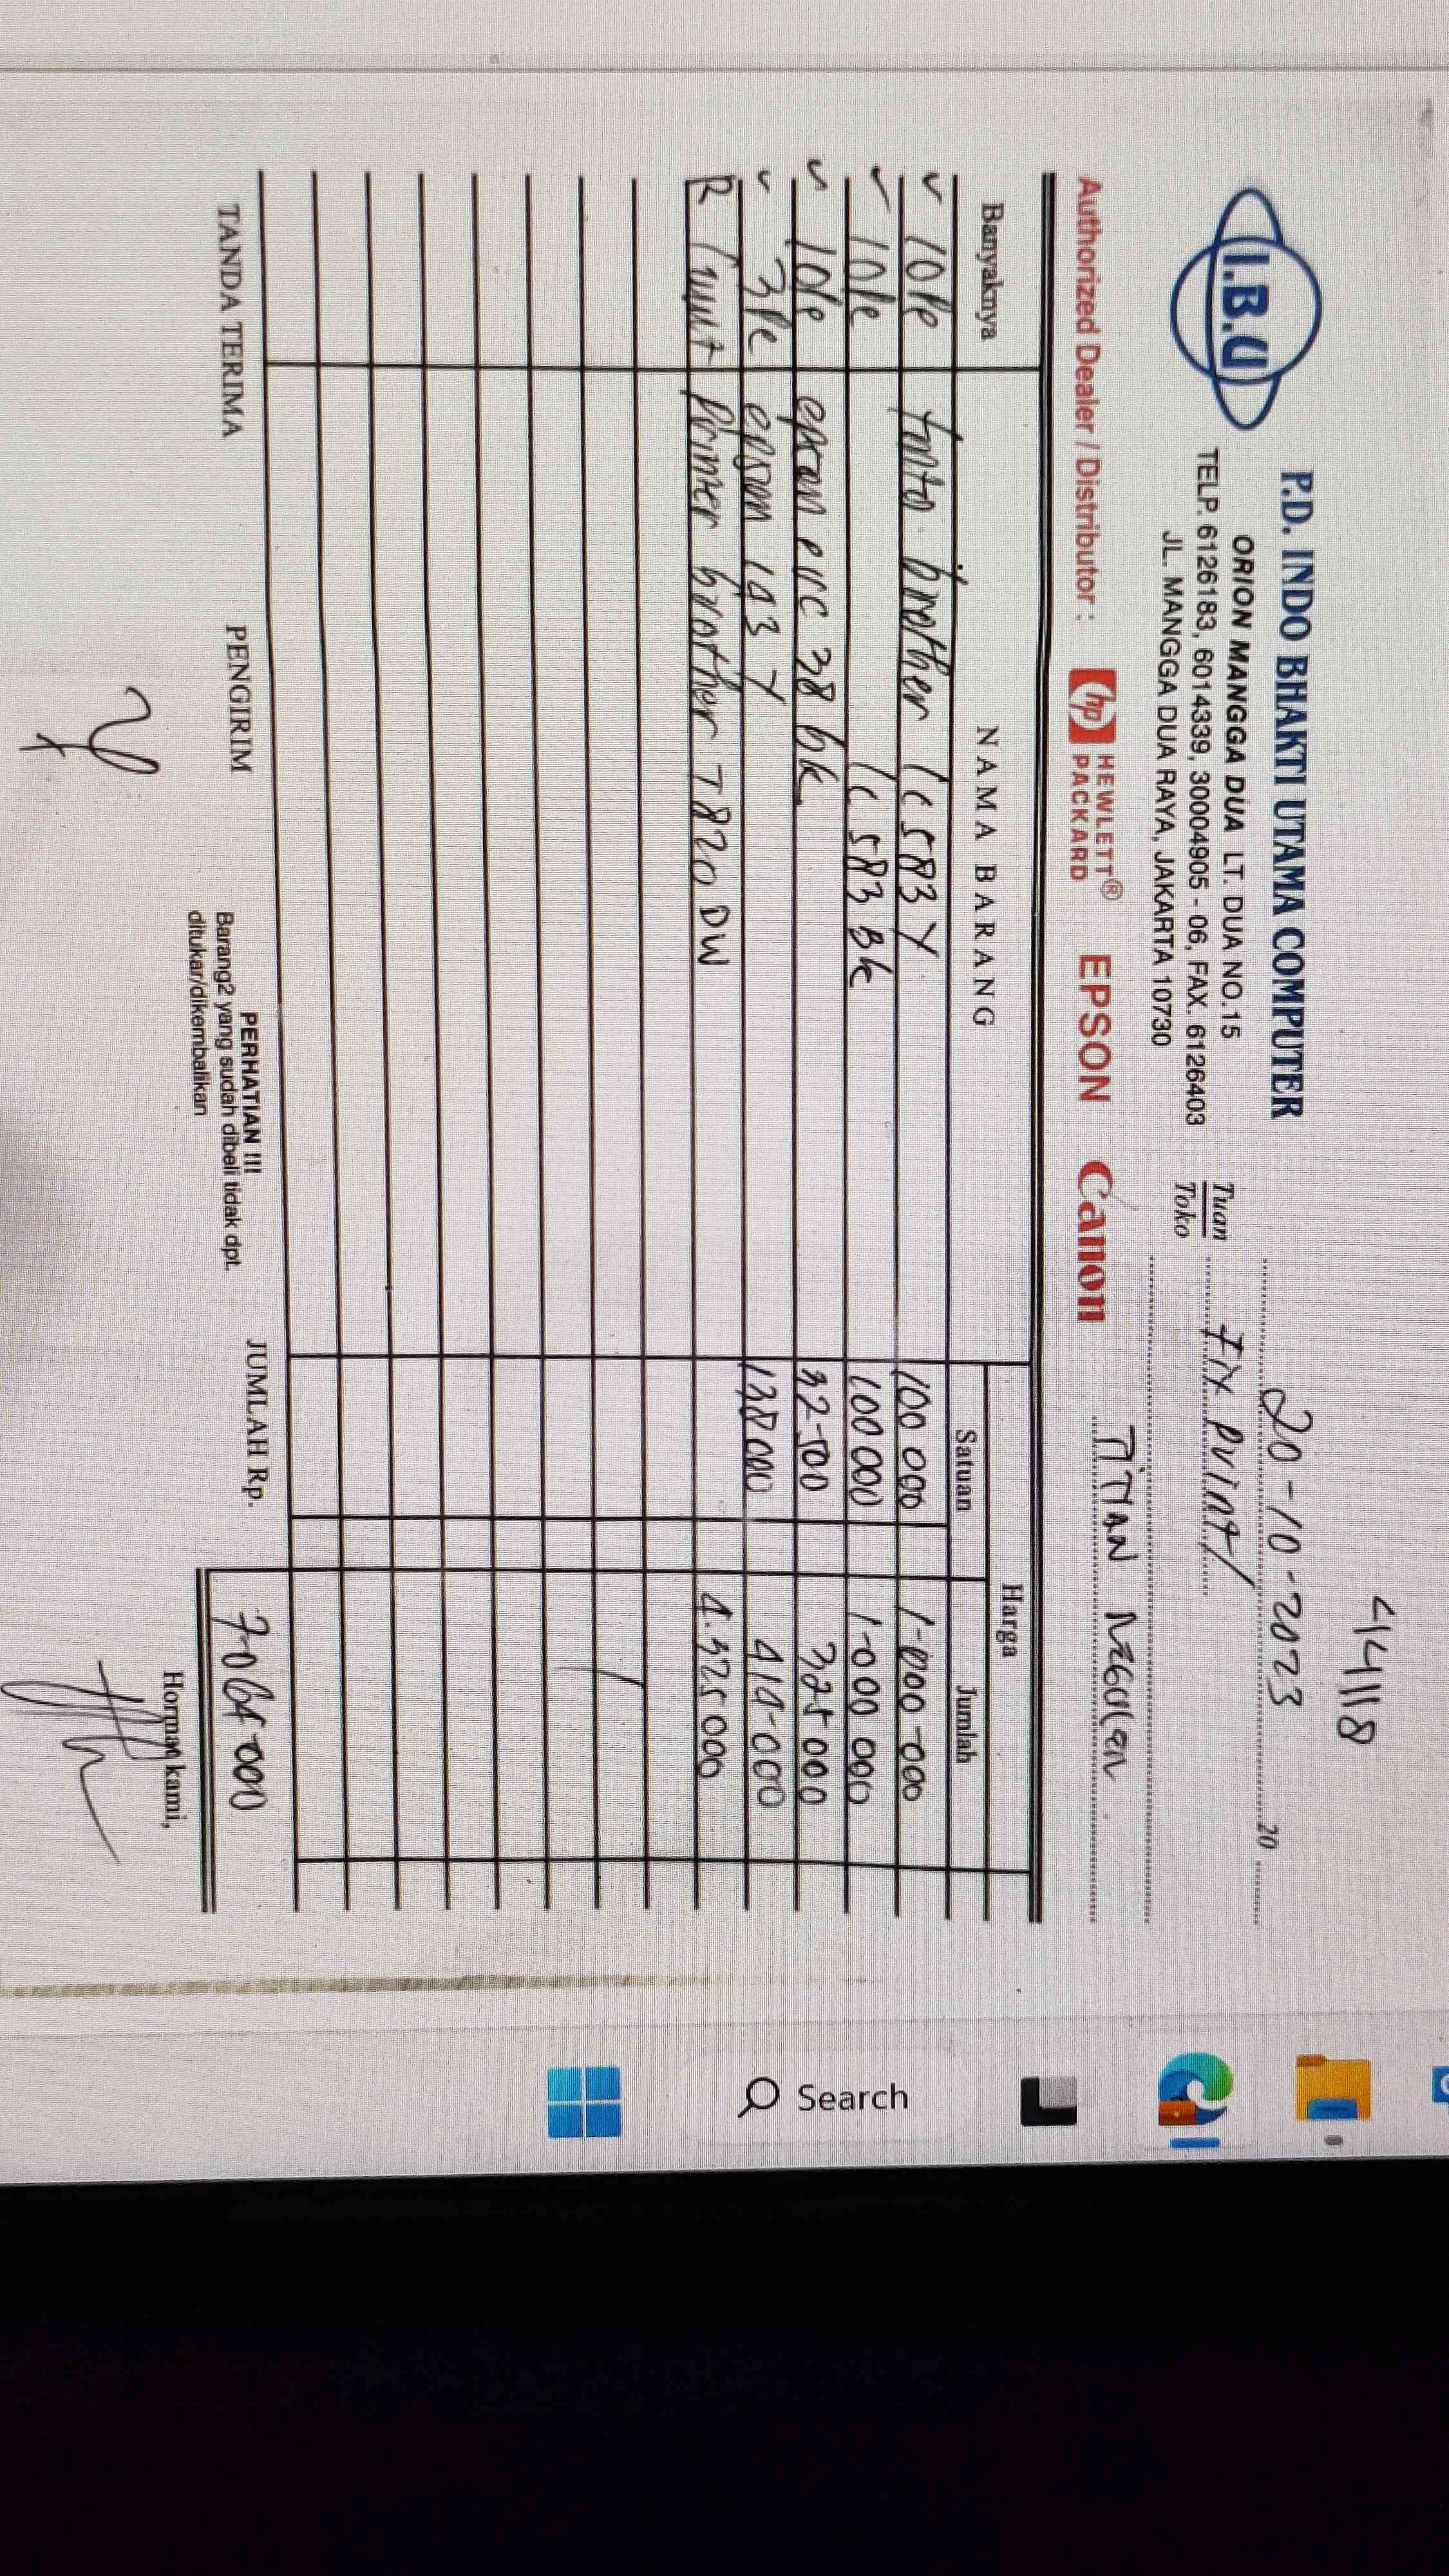 44118
I.B.U
P.D. INDO BHAKTI UTAMA COMPUTER
ORION MANGGA DUA LT. DUA NO.15
TELP. 6126183, 6014339, 30004905 - 06, FAX. 6126403
JL. MANGGA DUA RAYA, JAKARTA 10730
20-10-2023 20
Tuan
Toko
Fix Print/
TITIAN
Authorized Dealer / Distributor : hp HEWLETT® PACKARD EPSON Canon
Banyaknya NAMA BARANG Harga
Satuan Jumlah
10 Pc tinta brother LC 583 Y 100 000 1-000-000
10 Pc LC 583 BK 100 000 1-000 000
10 Pc epson PVC 38 bk 32-500 325 000
3 Pc epson 143 Y 138 000 414-000
R 1 unit Printer brother T820 DW 4.325 000
TANDA TERIMA PENGIRIM
PERHATIAN !!!
Barang2 yang sudah dibeli tidak dpt.
ditukar/dikembalikan
JUMLAH Rp. 7-064-000
Hormat kami,
Search